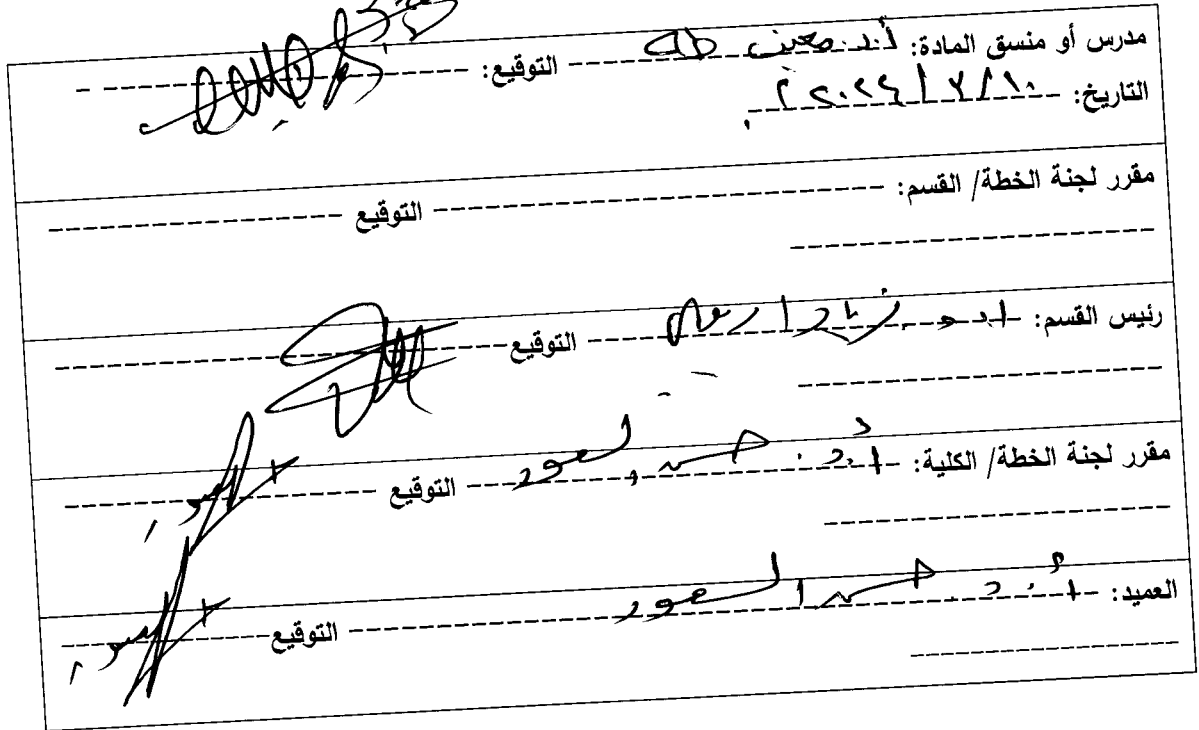 مدرس أو منسق المادة: أ.د. معين طه التوقيع:
التاريخ: ١٠/٧/٢٠٢٤ م
مقرر لجنة الخطة/ القسم: التوقيع
رئيس القسم: أ.د. زياد التوقيع
مقرر لجنة الخطة/ الكلية: أ.د. حسن العور التوقيع
العميد: أ.د. حسن العور التوقيع